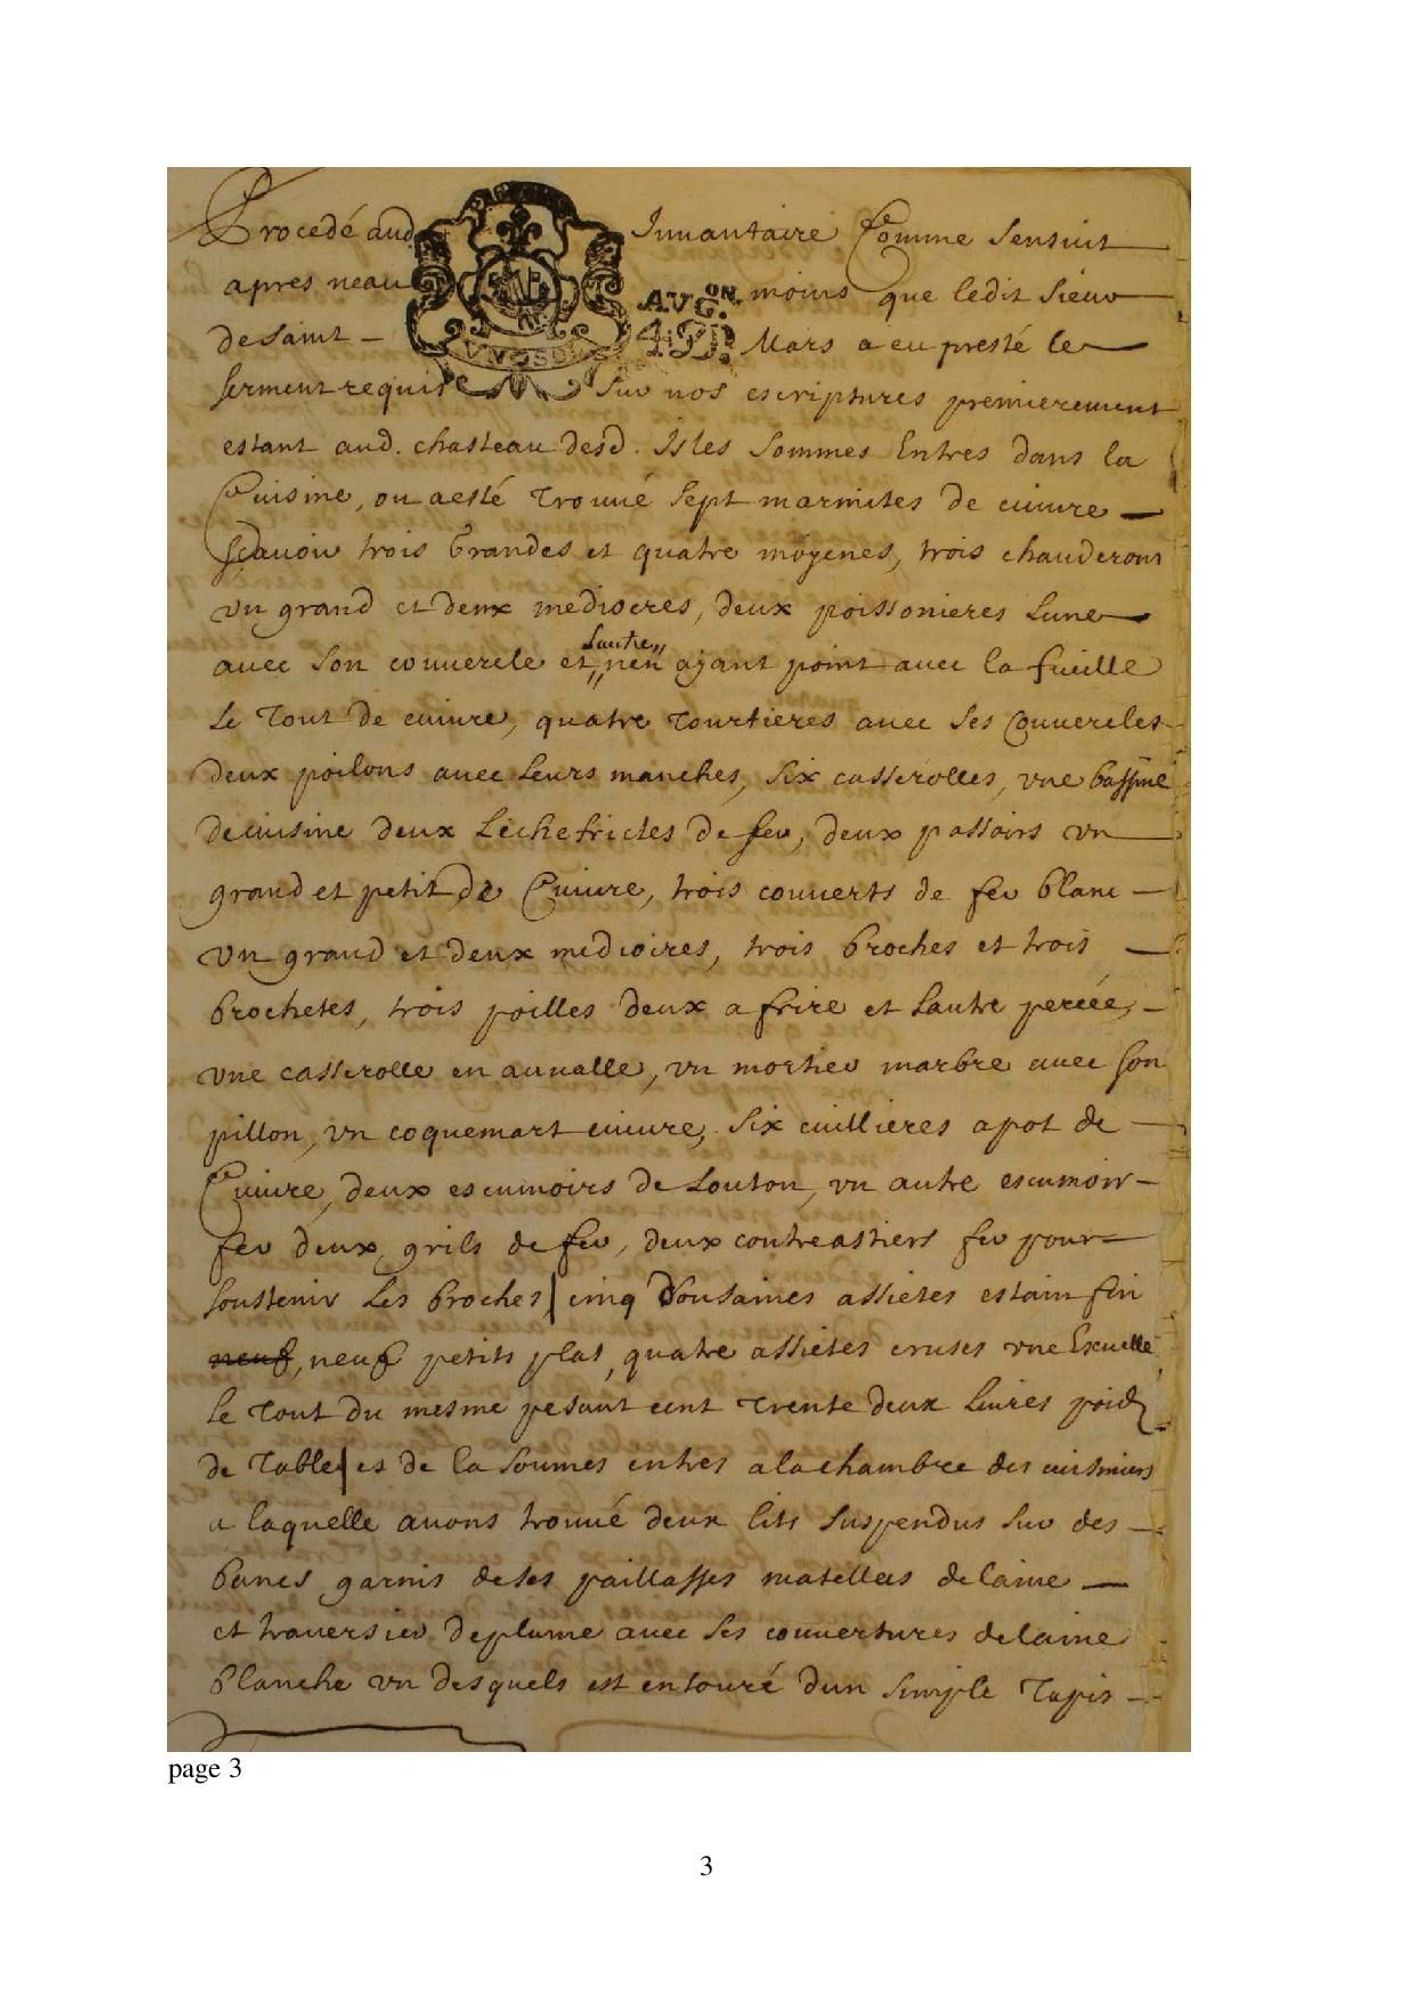 Procedé aud. Inuantaire Comme sensuit
apres neau moins que ledit sieur
de saint - AVG.ON 4 D. Mars a eu presté le
serment requis sur nos escriptures premierement
estant aud. chasteau desd. Isles sommes Entres dans la
Cuisine, ou a esté trouué sept marmites de cuiure
scauoir trois Grandes et quatre moyenes, trois chauderons
vn grand et deux mediocres, deux poissonieres lune
auec son couuercle et lautre nen ayant point auec la fueille
le tout de cuiure, quatre tourtieres auec ses couuercles
deux poilons auec leurs manches, six casserolles, vne bassine
de cuisine deux lechefrictes de fer, deux passoirs vn
grand et petit de Cuiure, trois couuerts de fer blanc
vn grand et deux medioires, trois broches et trois
brochetes, trois poilles deux a frire et lautre percée,
vne casserolle en auualle, vn mortier marbre auec son
pillon, vn coquemart cuiure, six cuillieres a pot de
Cuiure, deux escumoirs de Louton, vn autre escumoir
fer deux grils de fer, deux contreastiers fer pour
soustenir les broches cinq dousaines assietes estain fin
neuf, neuf petits plat, quatre assietes cruses vne Escuelle
le tout du mesme pesant cent trente deux liures poids
de table et de la sommes entres a la chambre des cuisiniers
a laquelle auons trouué deux lits suspendus sur des
bancs garnis de ses paillasses matellas de laine
et trauersier de plume auec ses couuertures de laine
blanche vn desquels est entouré dun simple tapis
page 3
3